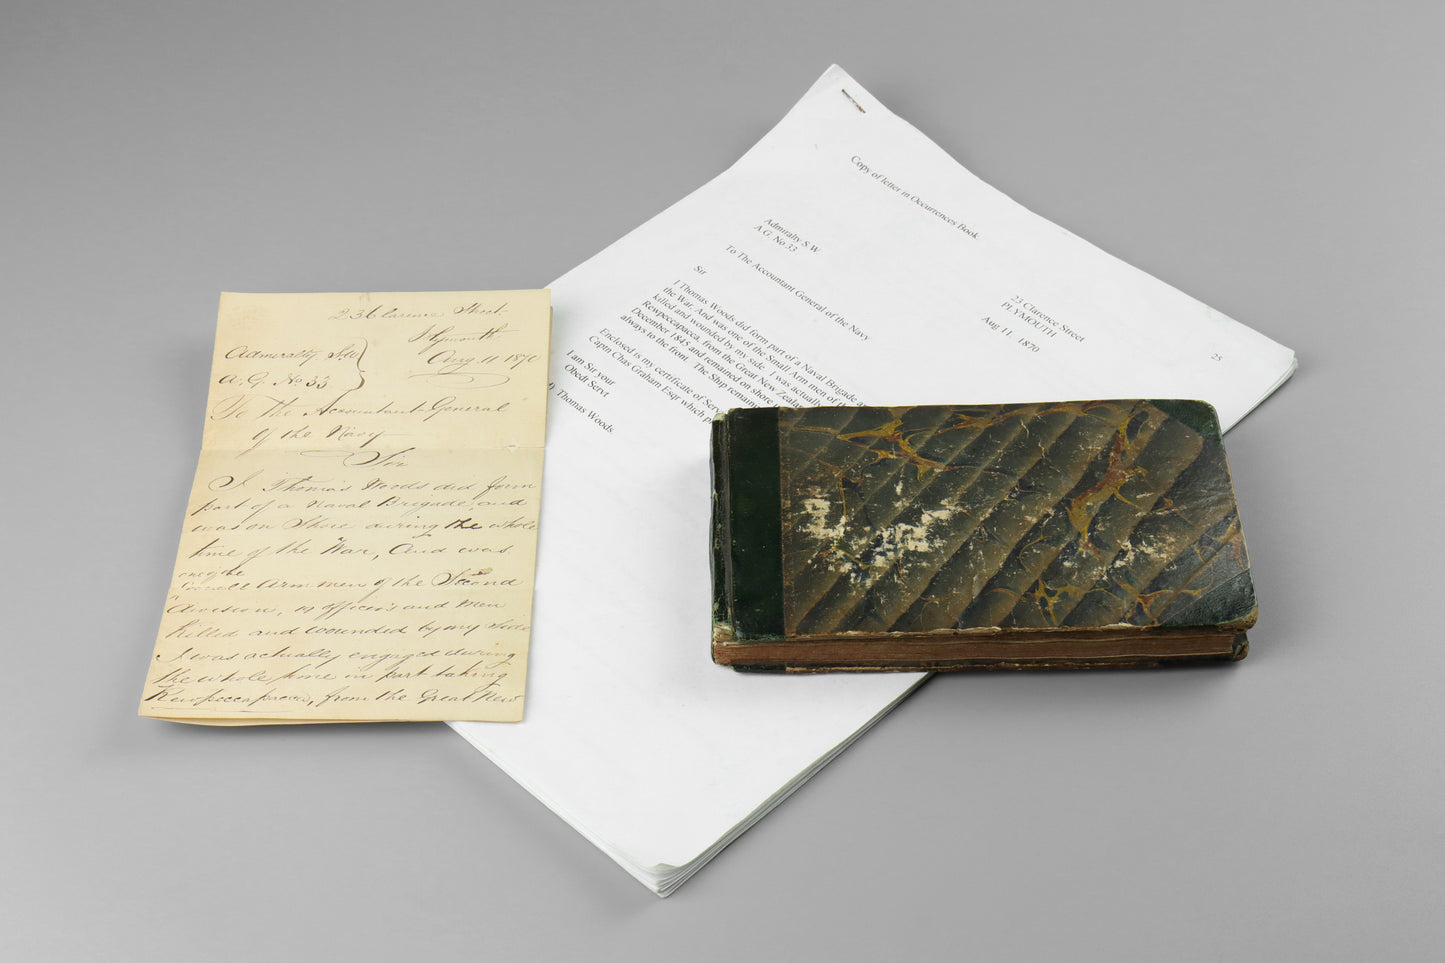 23 Clarence Street
Plymouth
Aug 11 1870
Admiralty S.W
A.G. No 33
To the Accountant General
of the Navy
Sir
I Thomas Woods did form
part of a Naval Brigade, and
was on Shore during the whole
time of the War, And was
one of the
Small Arm men of the Second
Division, officers and Men
Killed and wounded by my Side
I was actually engaged during
the whole time in part taking
Rewpeccapacca, from the Great New
Copy of letter in Occurrences Book
Admiralty S W
A.G. No 33
To The Accountant General of the Navy
23 Clarence Street
PLYMOUTH
Aug 11. 1870
25
Sir
I Thomas Woods did form part of a Naval Brigade
the War. And was one of the Small Arm men of the
killed and wounded by my side. I was actually
Rewpeccapacca, from the Great New
December 1845 and remained on shore
always to the front. The Ship
Enclosed is my certificate of
Captn Chas Graham Esqr which
I am Sir your
Obedt Servt
Thomas Woods.